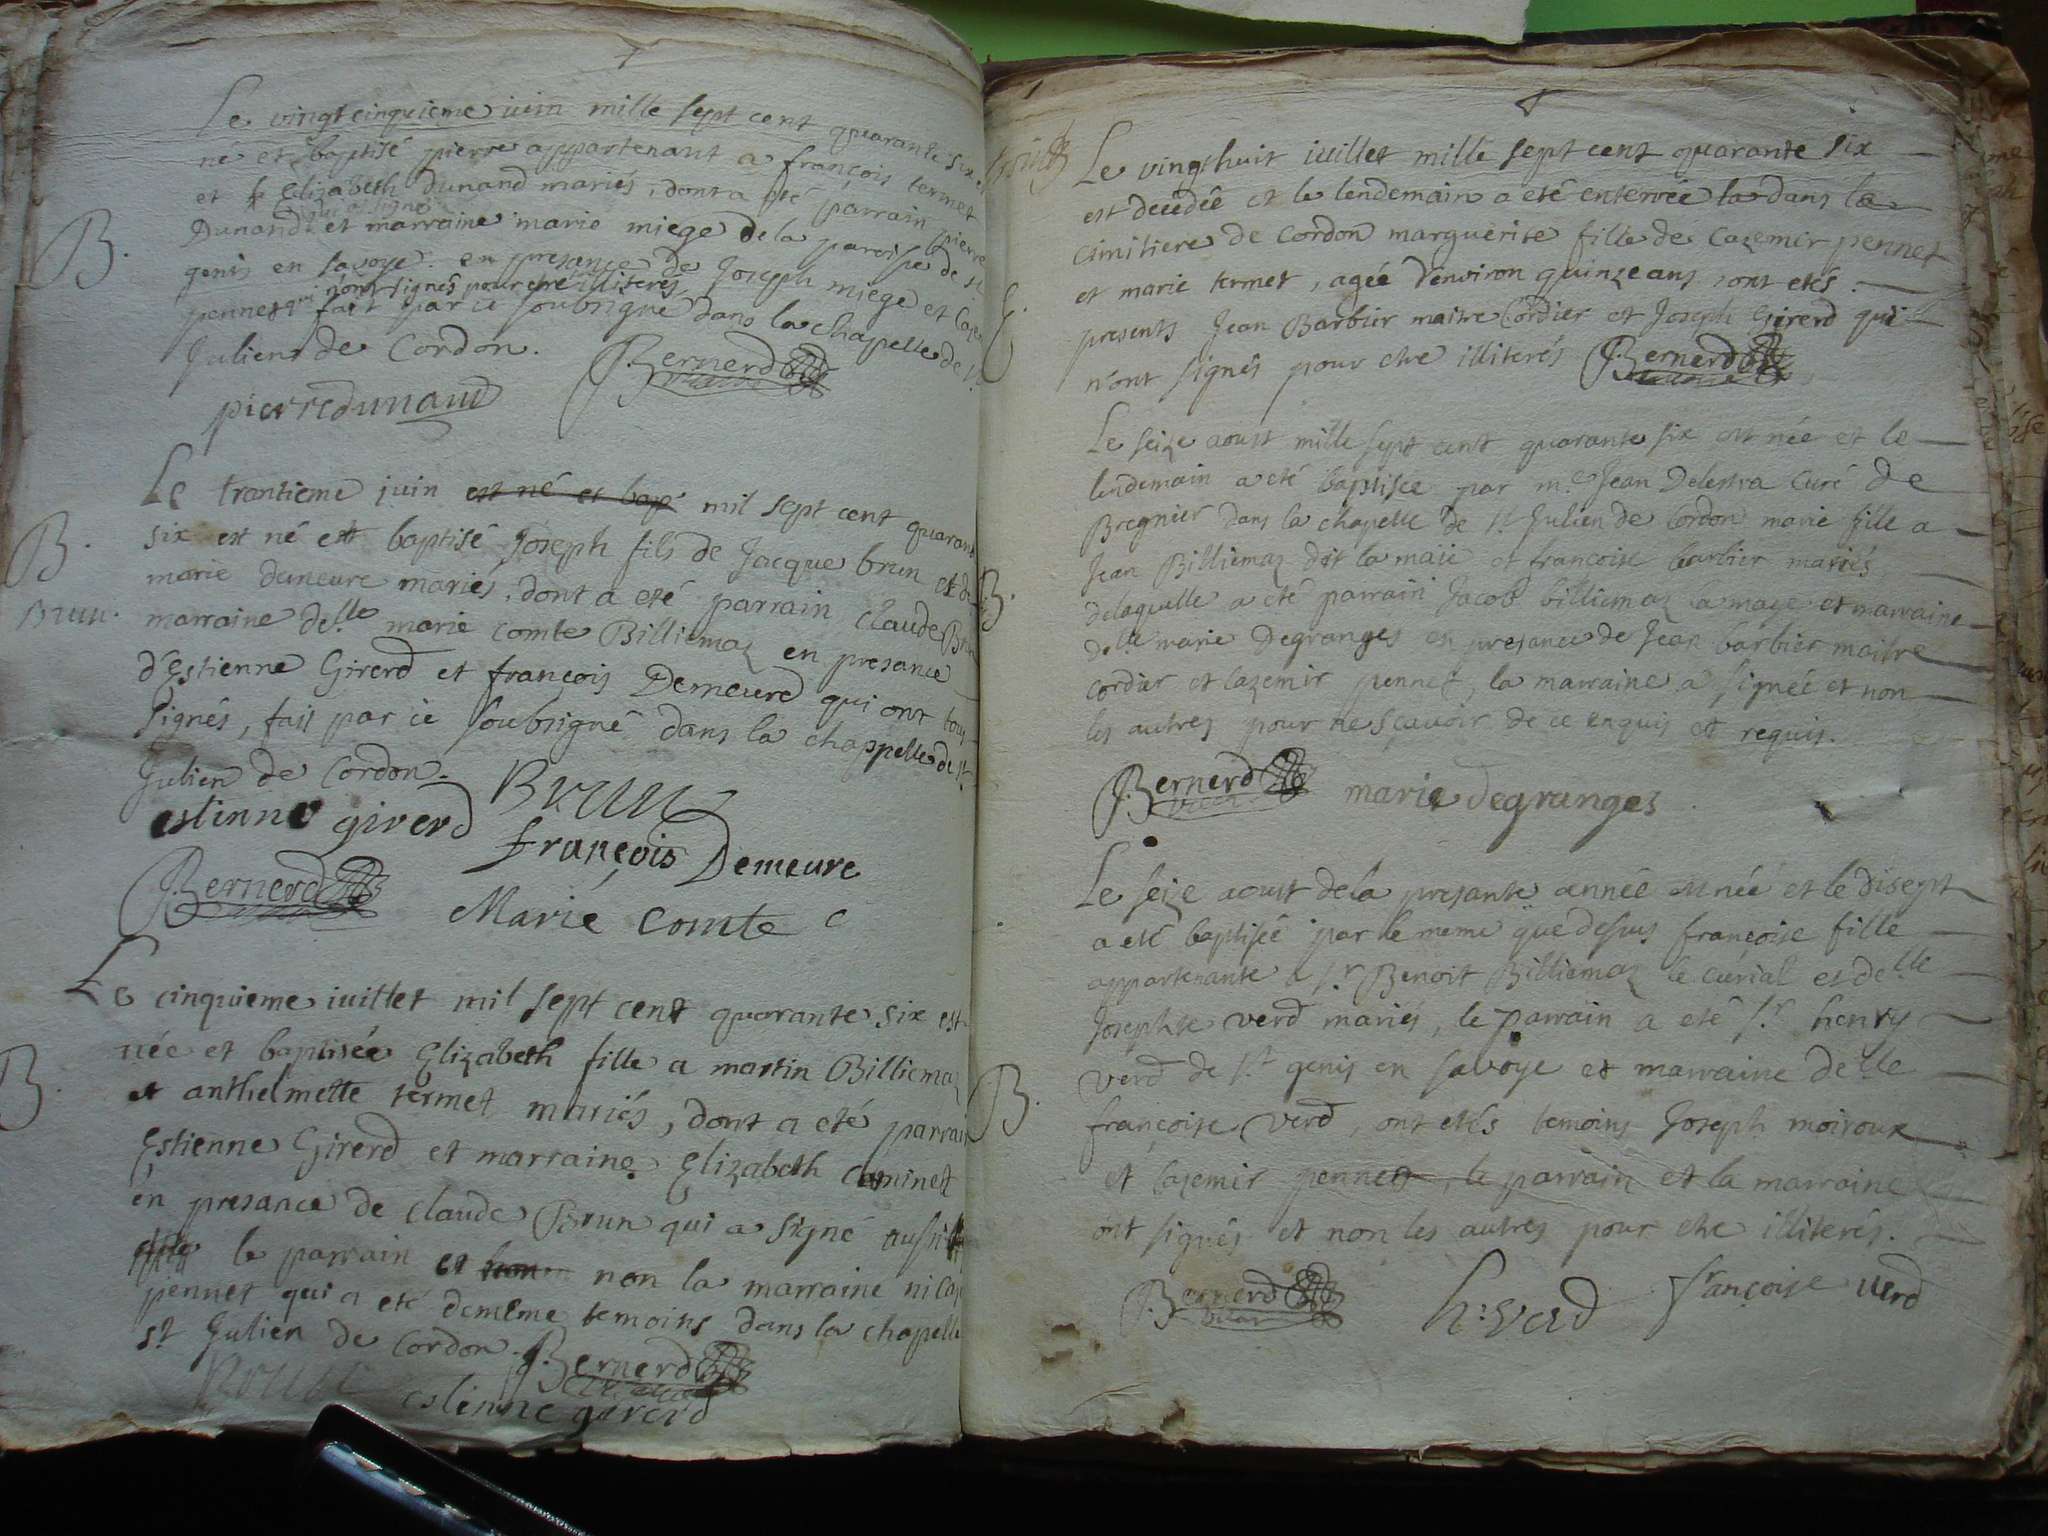 Le vingt cinquieme juin mille sept cent quarante six est
né et baptisé pierre appartenant a françois termet
et Elizabeth Dunand mariés, dont a eté parrain pierre
qui a signé
Dunand et marraine marie miege de la paroisse de st
genis en savoye en presance de Joseph miege et Caze
qui n'ont signés pour etre illiterés
pennet fait par ie soubsigné dans la chapelle de st
Julien de Cordon. Bernerd
pierre dunand
B.
Le trantieme juin est né et bap mil sept cent quarant
six est né et baptisé Joseph fils de Jacque brun et de
marie demeure mariés, dont a eté parrain Claude Brun
marraine delle marie comte Billiemaz en presance
d'Estienne Girerd et françois Demeure qui ont tous
signés, fait par ie soubsigné dans la chappelle de st
Julien de Cordon.
B.
Brun.
Brun
estienne girerd
françois Demeure
Bernerd
Marie comte
Le cinquieme iuillet mil sept cent quarante six est
née et baptisée Elizabeth fille a martin Billiemaz
et anthelmette termet mariés, dont a eté parrain
Estienne Girerd et marraine Elizabeth
en presance de claude Brun qui a signé aussi
le parrain et non la marraine ni Caze
pennet qui a eté dememe temoins dans la chapelle
st Julien de Cordon.
B.
Bernerd
Brun
estienne girerd
Le vingthuit iuillet mille sept cent quarante six
est decedée et le lendemain a eté enterrée dans le
cimitiere de Cordon marguerite fille de Cazemir pennet
et marie termet, agée d'environ quinze ans sont etés
presents Jean Barbier maitre Cordier et Joseph Girerd qui
n'ont signés pour etre illiterés Bernerd
Le seize aoust mille sept cent quarante six est née et le
lendemain a eté baptisée par me Jean Delestra Curé de
Bregnier dans la chapelle de st Julien de Cordon marie fille a
Jean Billiemaz dit la maiie et francoise barbier mariés
delaquelle a eté parrain Jacob billiemaz a maze et marraine
delle marie Degranges en presance de Jean barbier maitre
cordier et Cazemir pennet, la marraine a signée et non
les autres pour ne sçavoir de ce enquis et requis.
B.
Bernerd
marie degranges
Le seize aoust dela presante année est née et le disept
a eté baptisée par le meme que dessus francoise fille
appartenante a sr Benoit Billiemaz le curial et delle
Josephte verd mariés, le parrain a eté sr henry
verd de st genis en savoye et marraine delle
françoise verd, ont etés temoins Joseph moiroux
et Cazemir pennet, le parrain et la marraine
ont signés et non les autres pour etre illiterés.
B.
Bernerd
h: verd
françoise verd